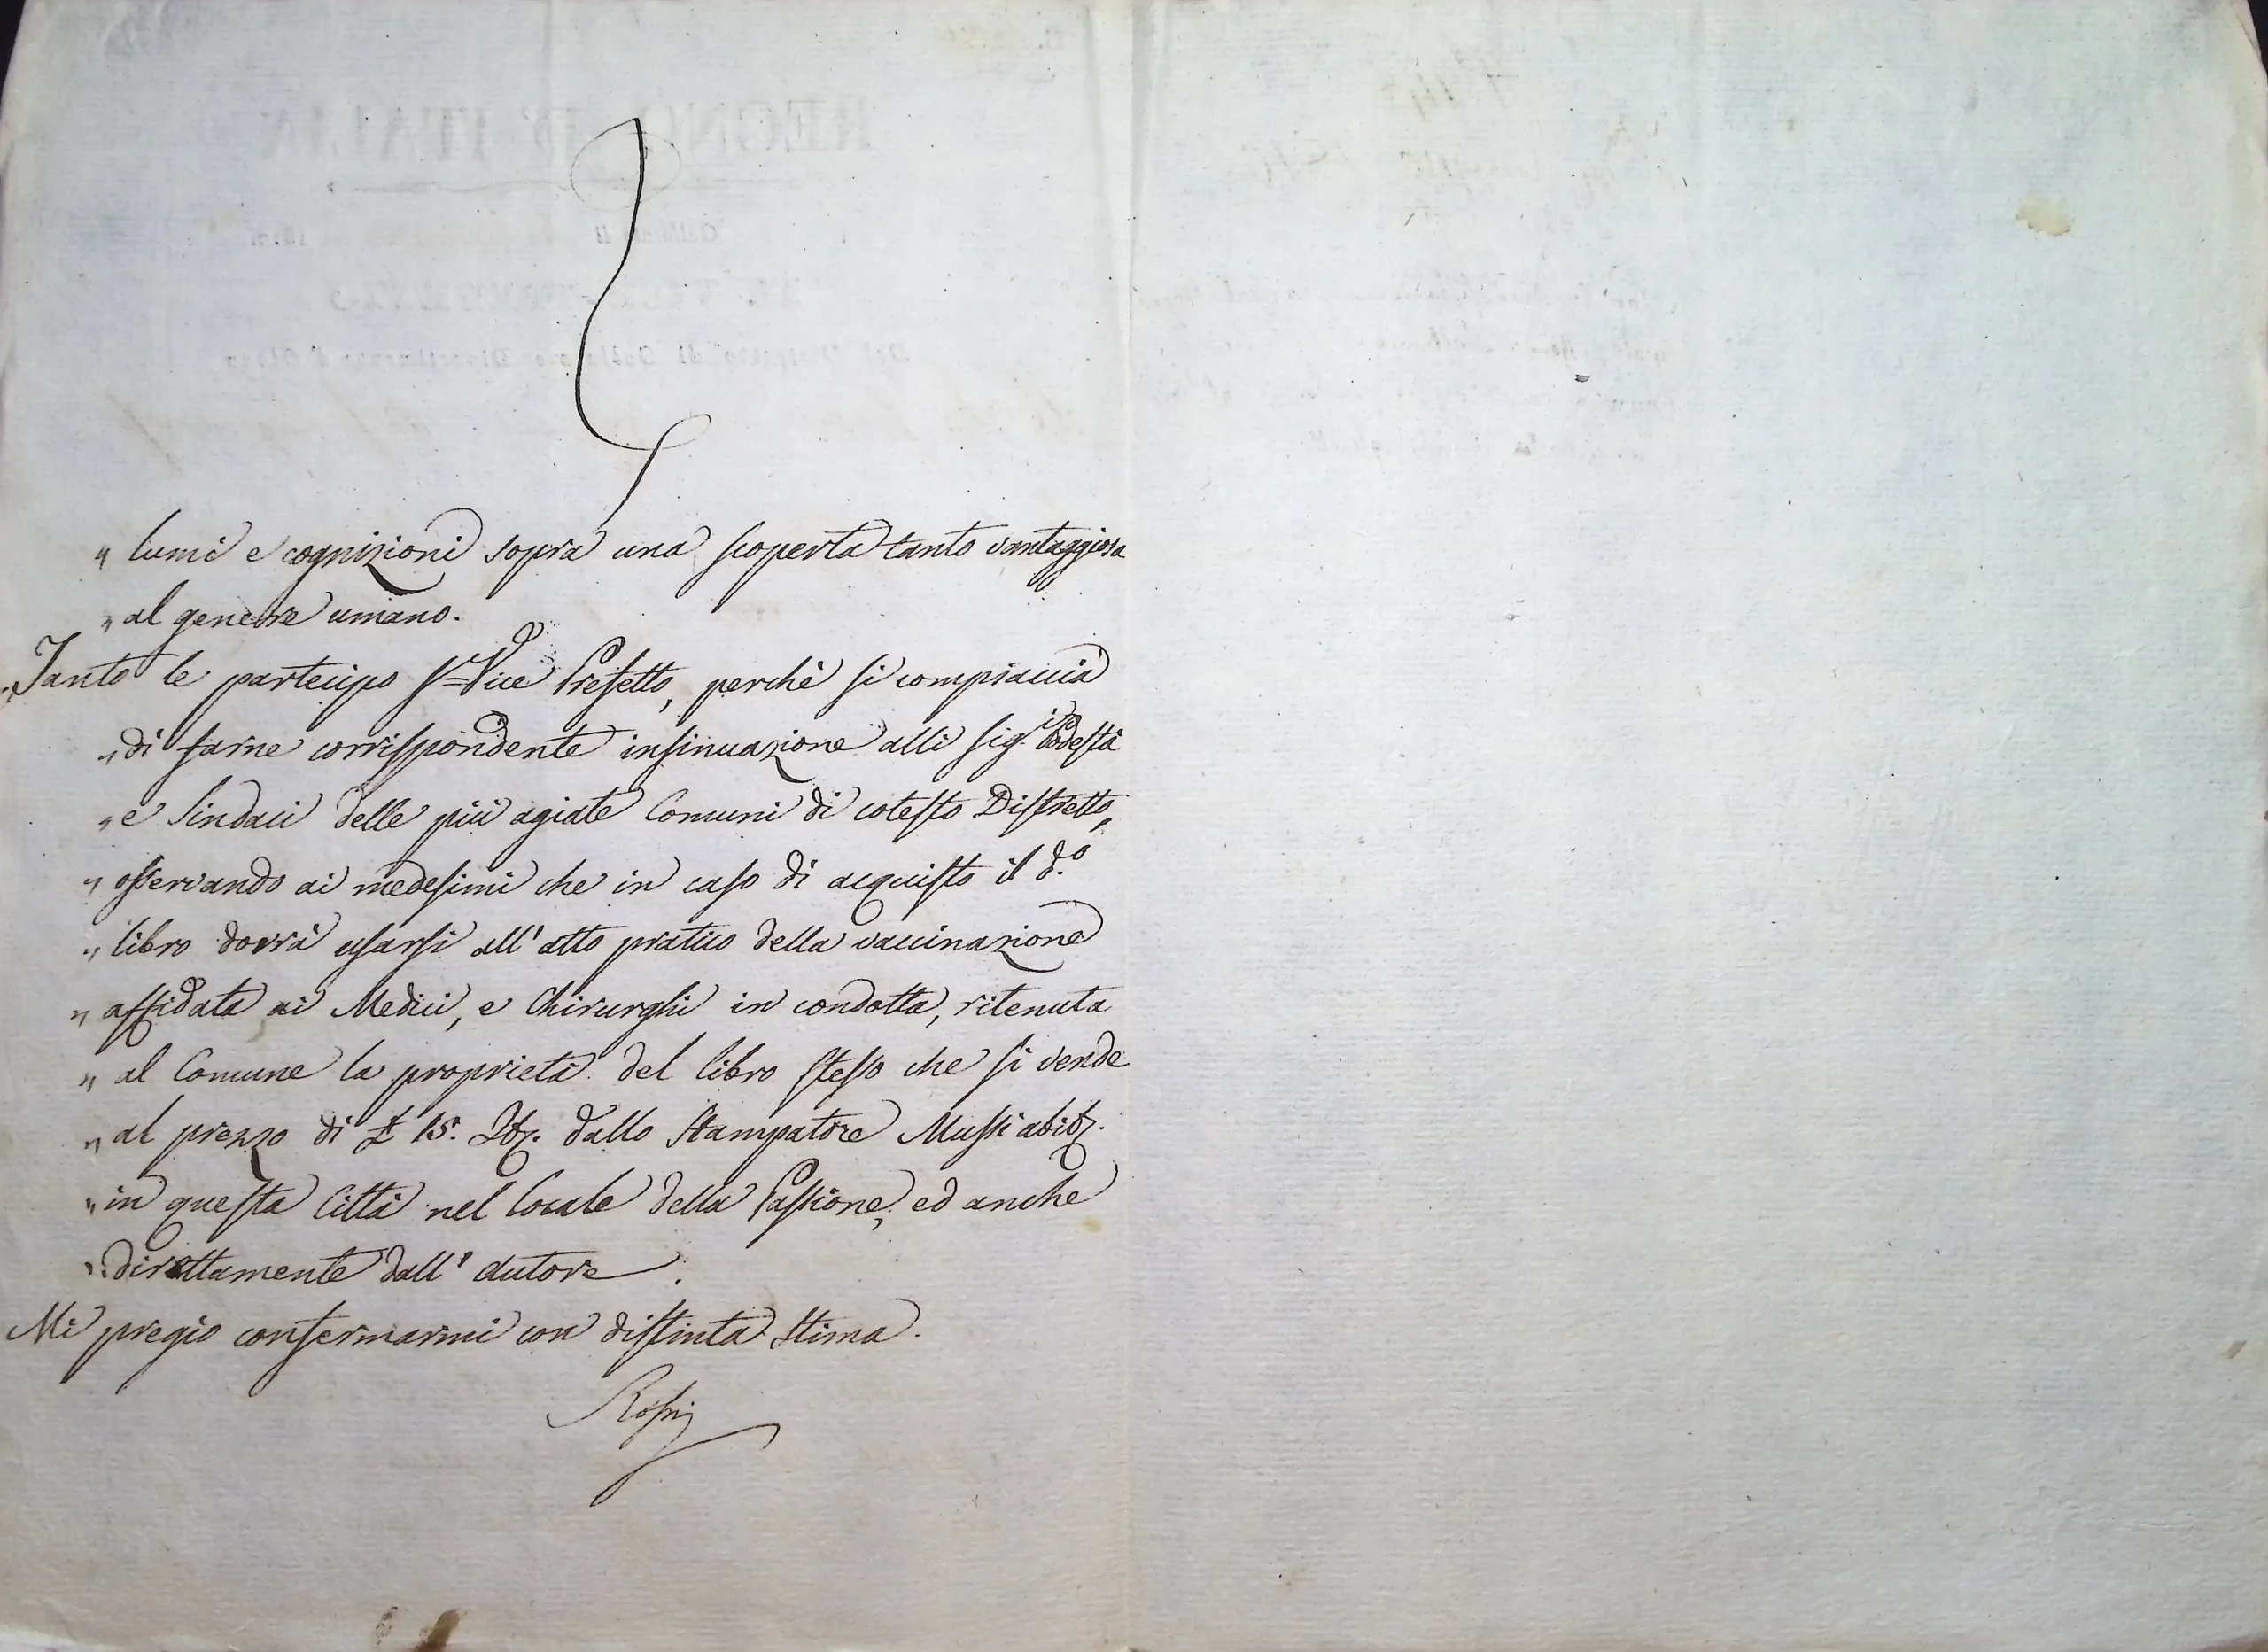 „ lumi e cognizioni sopra una scoperta tanto vantaggiosa
„ al genere umano.
„ Tanto le partecipo Sr. Vice Prefetto, perchè si compiaccia
„ di farne corrispondente insinuazione alli Sig.ri Podestà
„ e Sindaci delle più agiate Comuni di cotesto Distretto,
„ osservando ai medesimi che in caso di acquisto il d.o
„ libro dovrà usarsi all'atto pratico della vaccinazione
„ affidata ai Medici, e Chirurghi in condotta, ritenuta
„ al Comune la proprietà del libro stesso che si vende
„ al prezzo di £ 15. dallo Stampatore Mussi
„ in questa Città nel locale della Passione, ed anche
„ direttamente dall'autore.
Mi pregio confermarmi con distinta stima.
Rossi
REGNO D'ITALIA